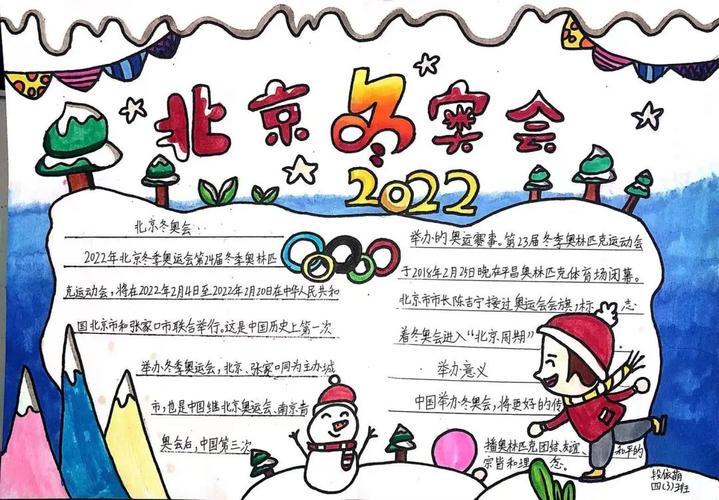 北京冬奥会
2022
北京冬奥会:
2022年北京冬季奥运会第24届冬季奥林匹
克运动会,将在2022年2月4日至2022年2月20日在中华人民共和
国北京市和张家口市联合举行。这是中国历史上第一次
举办冬季奥运会,北京、张家口同为主办城
市,也是中国继北京奥运会、南京青
奥会后,中国第三次
举办的奥运赛事。第23届冬季奥林匹克运动会
于2018年2月25日晚在平昌奥林匹克体育场闭幕。
北京市市长陈吉宁接过奥运会会旗,标志
着冬奥会进入“北京周期”
举办意义
中国举办冬奥会,将更好的传
播奥林匹克团结、友谊、和平的
宗旨和理念。
段依萌
四(3)班